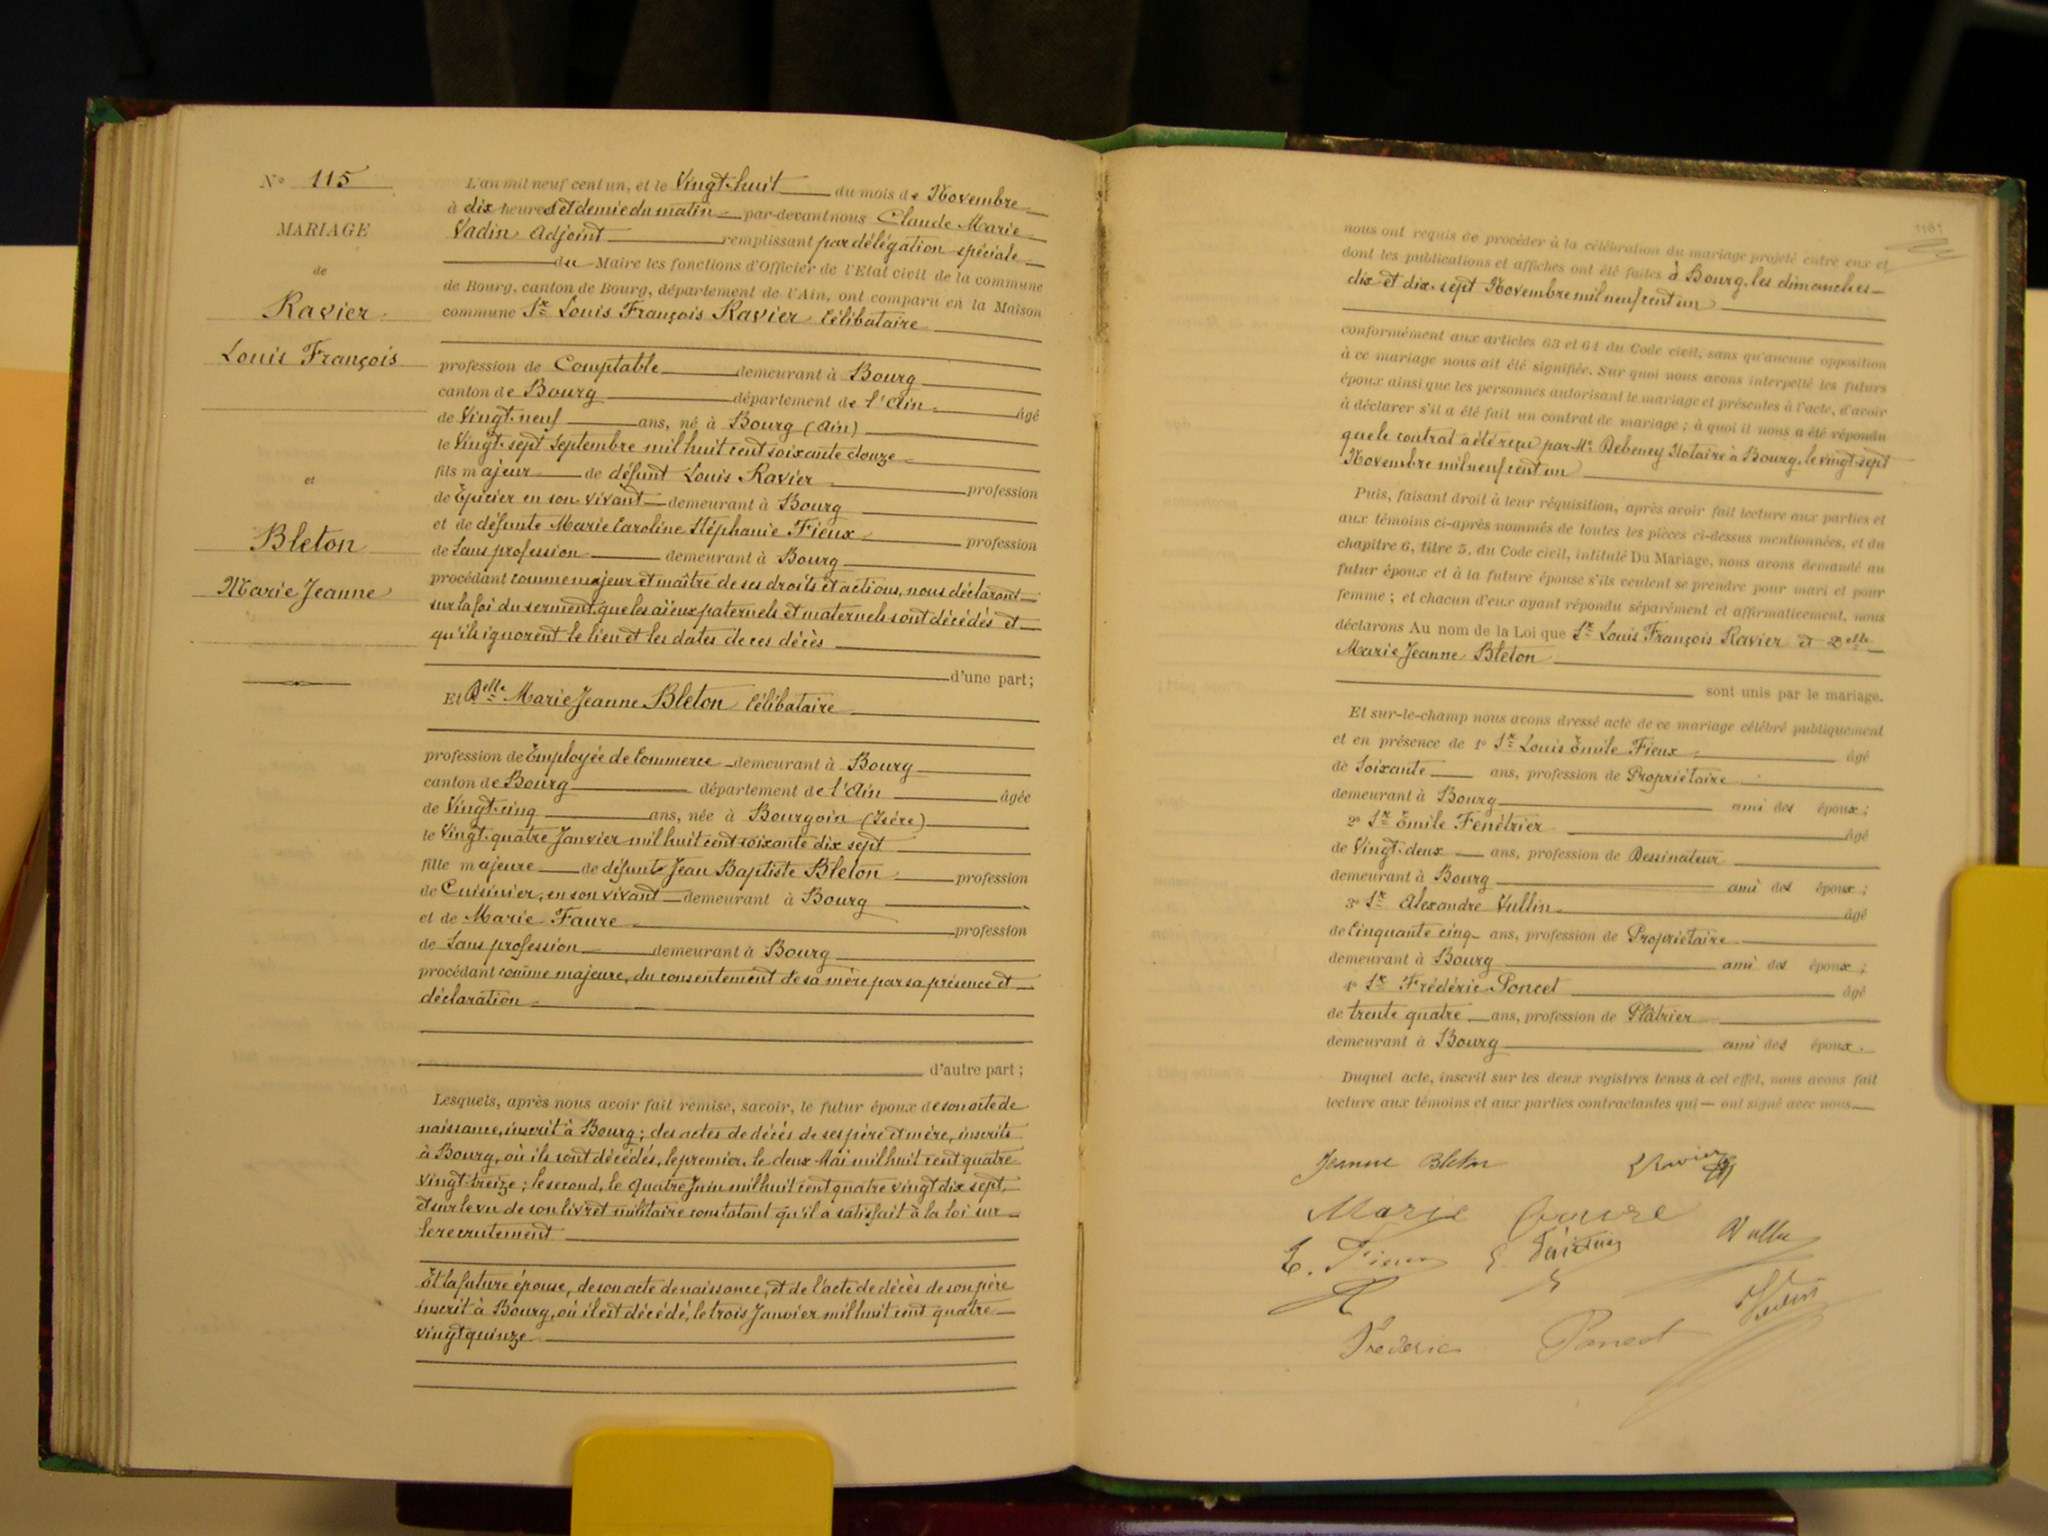 N° 115
MARIAGE
de
Ravier
Louis François
et
Bleton
Marie Jeanne
L'an mil neuf cent un, et le Vingt-huit du mois de Novembre
à dix heures et demie du matin par-devant nous Claude Marie
Vadin Adjoint remplissant par délégation spéciale
du Maire les fonctions d'Officier de l'Etat civil de la commune
de Bourg, canton de Bourg, département de l'Ain, ont comparu en la Maison
commune Sr Louis François Ravier célibataire
profession de Comptable demeurant à Bourg
canton de Bourg département de l'Ain âgé
de Vingt-neuf ans, né à Bourg (Ain)
le Vingt-sept Septembre mil huit cent soixante douze
fils majeur de défunt Louis Ravier profession
de Epicier en son vivant demeurant à Bourg
et de défunte Marie Caroline Stéphanie Fieux profession
de Sans profession demeurant à Bourg
procédant comme majeur et maître de ses droits et actions, nous déclarant
sur la foi du serment que les aïeux paternels et maternels sont décédés et
qu'ils ignorent le lieu et les dates de ces décès
d'une part;
Et Delle Marie Jeanne Bleton célibataire
profession de Employée de Commerce demeurant à Bourg
canton de Bourg département de l'Ain âgée
de Vingt-cinq ans, née à Bourgoin (Isère)
le Vingt-quatre Janvier mil huit cent soixante dix sept
fille majeure de défunt Jean Baptiste Bleton profession
de Cuisinier, en son vivant demeurant à Bourg
et de Marie Faure profession
de Sans profession demeurant à Bourg
procédant comme majeure, du consentement de sa mère par sa présence et
déclaration
d'autre part;
Lesquels, après nous avoir fait remise, savoir, le futur époux de son acte de
naissance, inscrit à Bourg; des actes de décès de ses père et mère, inscrits
à Bourg, où ils sont décédés, le premier, le deux Mai mil huit cent quatre
vingt-treize; le second, le quatre Juin mil huit cent quatre vingt dix sept,
et sur le vu de son livret militaire constatant qu'il a satisfait à la loi sur
le recrutement
Et la future épouse, de son acte de naissance, et de l'acte de décès de son père
inscrit à Bourg, où il est décédé, le trois Janvier mil huit cent quatre
vingt quinze
1181
nous ont requis de procéder à la célébration du mariage projeté entre eux et
dont les publications et affiches ont été faites à Bourg, les dimanches
dix et dix-sept Novembre mil neuf cent un
conformément aux articles 63 et 64 du Code civil, sans qu'aucune opposition
à ce mariage nous ait été signifiée. Sur quoi nous avons interpellé les futurs
époux ainsi que les personnes autorisant le mariage et présentes à l'acte, d'avoir
à déclarer s'il a été fait un contrat de mariage; à quoi il nous a été répondu
que le contrat a été reçu par Me Debeney Notaire à Bourg, le vingt-sept
Novembre mil neuf cent un
Puis, faisant droit à leur réquisition, après avoir fait lecture aux parties et
aux témoins ci-après nommés de toutes les pièces ci-dessus mentionnées, et du
chapitre 6, titre 5, du Code civil, intitulé Du Mariage, nous avons demandé au
futur époux et à la future épouse s'ils veulent se prendre pour mari et pour
femme; et chacun d'eux ayant répondu séparément et affirmativement, nous
déclarons Au nom de la Loi que Sr Louis François Ravier et Delle
Marie Jeanne Bleton
sont unis par le mariage.
Et sur-le-champ nous avons dressé acte de ce mariage célébré publiquement
et en présence de 1° Sr Louis Emile Fieux âgé
de Soixante ans, profession de Propriétaire
demeurant à Bourg ami des époux;
2° Sr Emile Fenêtrier âgé
de Vingt-deux ans, profession de Dessinateur
demeurant à Bourg ami des époux;
3° Sr Alexandre Vullin âgé
de Cinquante cinq ans, profession de Propriétaire
demeurant à Bourg ami des époux;
4° Sr Frédéric Poncet âgé
de trente quatre ans, profession de Plâtrier
demeurant à Bourg ami des époux.
Duquel acte, inscrit sur les deux registres tenus à cet effet, nous avons fait
lecture aux témoins et aux parties contractantes qui ont signé avec nous
Jeanne Bleton LRavier
Marie Faure
E. Fieux
Frédéric Poncet Vadin